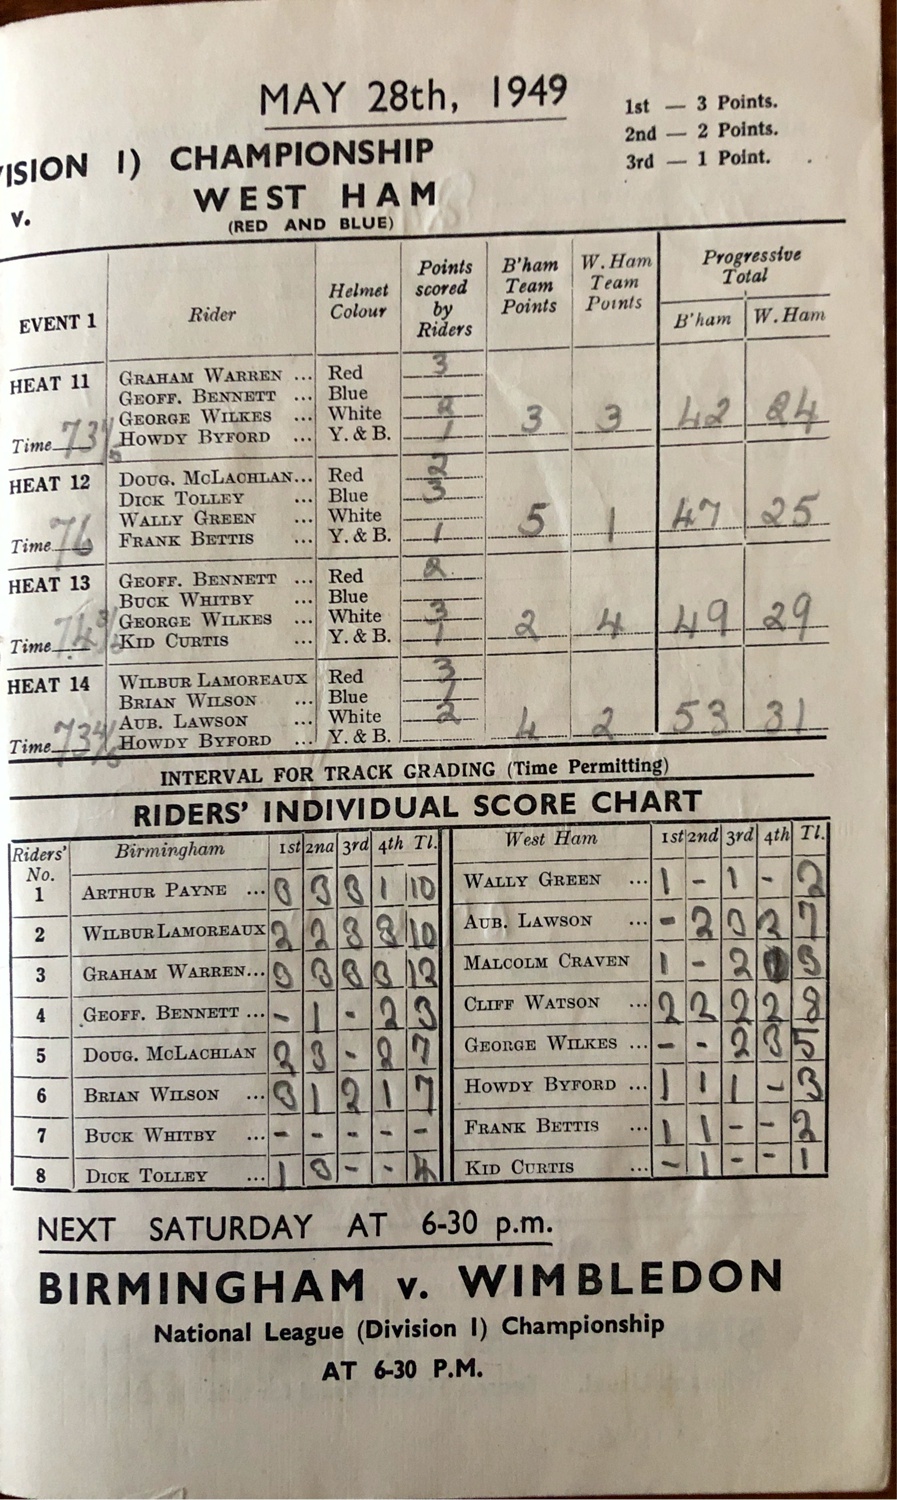 MAY 28th, 1949
1st — 3 Points.
2nd — 2 Points.
3rd — 1 Point.
ISION I) CHAMPIONSHIP
v. WEST HAM
(RED AND BLUE)
EVENT 1 Rider Helmet Colour Points scored by Riders B'ham Team Points W. Ham Team Points Progressive Total B'ham W. Ham
HEAT 11 GRAHAM WARREN ... Red 3
GEOFF. BENNETT ... Blue
GEORGE WILKES ... White 2 3 3 42 24
Time 73 1/5 HOWDY BYFORD ... Y. & B. 1
HEAT 12 DOUG. MCLACHLAN... Red 2
DICK TOLLEY ... Blue 3
WALLY GREEN ... White 5 1 47 25
Time 76 FRANK BETTIS ... Y. & B. 1
HEAT 13 GEOFF. BENNETT ... Red 2
BUCK WHITBY ... Blue
GEORGE WILKES ... White 3 2 4 49 29
Time KID CURTIS ... Y. & B. 1
HEAT 14 WILBUR LAMOREAUX Red 3
BRIAN WILSON ... Blue 1
AUB. LAWSON ... White 2 4 2 53 31
Time 73 4/5 HOWDY BYFORD ... Y. & B.
INTERVAL FOR TRACK GRADING (Time Permitting)
RIDERS' INDIVIDUAL SCORE CHART
Riders' No. Birmingham 1st 2nd 3rd 4th Tl. West Ham 1st 2nd 3rd 4th Tl.
1 ARTHUR PAYNE ... 3 3 3 1 10 WALLY GREEN ... 1 - 1 - 2
2 WILBUR LAMOREAUX 2 2 3 3 10 AUB. LAWSON ... - 2 3 2 7
3 GRAHAM WARREN... 3 3 3 3 12 MALCOLM CRAVEN 1 - 2 3
4 GEOFF. BENNETT ... - 1 - 2 3 CLIFF WATSON ... 2 2 2 2 8
5 DOUG. MCLACHLAN 2 3 - 2 7 GEORGE WILKES ... - - 2 3 5
6 BRIAN WILSON ... 3 1 2 1 7 HOWDY BYFORD ... 1 1 1 - 3
7 BUCK WHITBY ... - - - - - FRANK BETTIS ... 1 1 - - 2
8 DICK TOLLEY ... 1 3 - - 4 KID CURTIS ... - 1 - - 1
NEXT SATURDAY AT 6-30 p.m.
BIRMINGHAM v. WIMBLEDON
National League (Division I) Championship
AT 6-30 P.M.